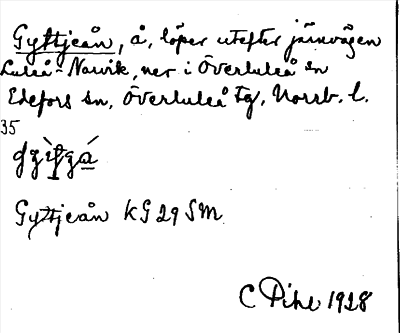 Gyttjeån, å, löper utefter järnvägen
Luleå-Narvik, ner i Överluleå sn
Edefors sn, Överluleå tg, Norrb. l.
35
Gyttjeån KG 29 SM
C Pihl 1928